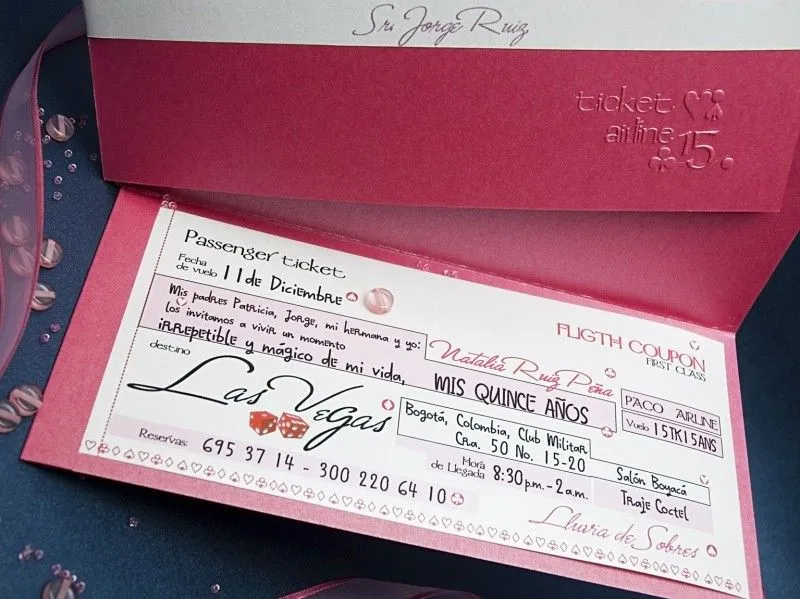 Sr. Jorge Ruiz
ticket
airline 15
Passenger ticket
Fecha
de vuelo 11 de Diciembre
Mis padres Patricia, Jorge, mi hermana y yo:
los invitamos a vivir un momento
irrepetible y mágico de mi vida,
Natalia Ruiz Peña
MIS QUINCE AÑOS
FLIGTH COUPON
FIRST CLASS
PACO AIRLINE
Vuelo 15TK15ANS
destino
Las Vegas
Bogotá, Colombia, Club Militar
Cra. 50 No. 15-20
Hora
de Llegada 8:30p.m.-2a.m.
Salón Boyacá
Traje Coctel
Reservas: 695 37 14 - 300 220 64 10
Lluvia de Sobres